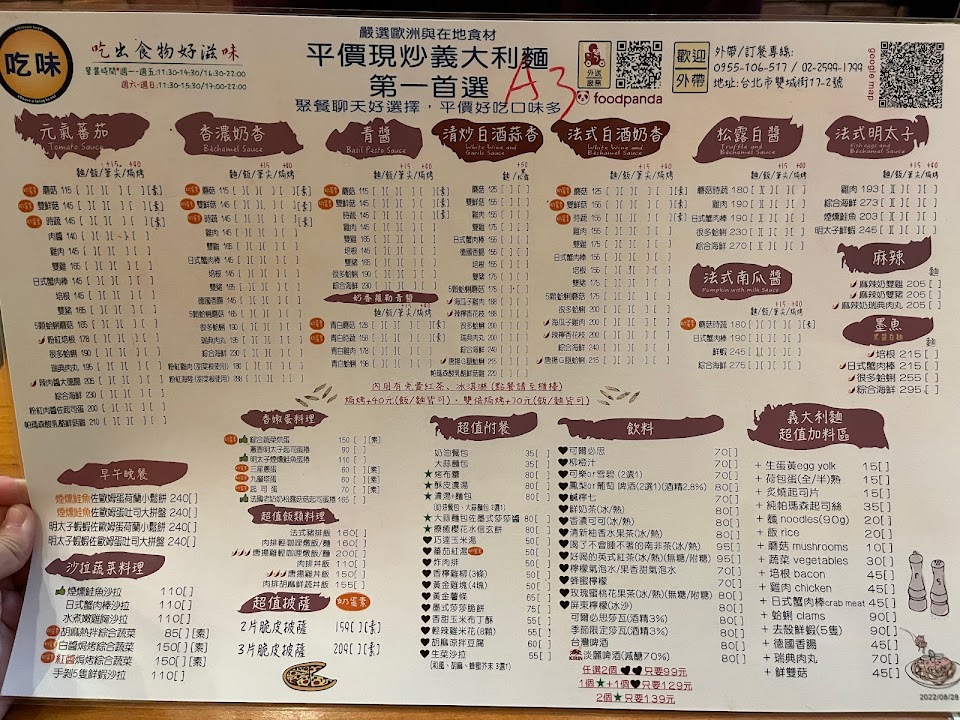 吃味
吃出食物好滋味
營業時間*週一-週五:11:30-14:30/16:30-22:00
週六-週日:11:30-15:30/17:00-22:00
嚴選歐洲與在地食材
平價現炒義大利麵
第一首選
聚餐聊天好選擇，平價好吃口味多
A3
外送服務
foodpanda
歡迎外帶
外帶/訂餐專線:
0955-106-517 / 02-2599-1799
地址:台北市雙城街17-2號
google map
元氣蕃茄
Tomato Sauce
+15 +40
麵/飯/筆尖/焗烤
蘑菇 115 [ ][ ][ ][ ][素]
雙鮮菇 145 [ ][ ][ ][ ][素]
時蔬 145 [ ][ ][ ][ ][素]
肉醬 140 [ ][ ][ ][ ]
雞肉 145 [ ][ ][ ][ ]
雙雞 145 [ ][ ][ ][ ]
日式蟹肉棒 145 [ ][ ][ ][ ]
培根 145 [ ][ ][ ][ ]
雙豬 165 [ ][ ][ ][ ]
5顆蛤蜊蘑菇 165 [ ][ ][ ][ ]
粉紅培根 178 [ ][ ][ ][ ]
很多蛤蜊 190 [ ][ ][ ][ ]
瑞典肉丸 195 [ ][ ][ ][ ]
辣肉醬大德腸 205 [ ][ ][ ][ ]
綜合海鮮 220 [ ][ ][ ][ ]
粉紅肉醬佐起司蛋 200 [ ][ ][ ][ ]
帕瑪森酸乳酪鮮菇雞 210 [ ][ ][ ][ ]
香濃奶香
Béchamel Sauce
+15 +40
麵/飯/筆尖/焗烤
蘑菇 115 [ ][ ][ ][ ][素]
雙鮮菇 145 [ ][ ][ ][ ][素]
時蔬 145 [ ][ ][ ][ ][素]
雞肉 145 [ ][ ][ ][ ]
雙雞 145 [ ][ ][ ][ ]
日式蟹肉棒 145 [ ][ ][ ][ ]
培根 145 [ ][ ][ ][ ]
雙豬 165 [ ][ ][ ][ ]
德國香腸 165 [ ][ ][ ][ ]
5顆蛤蜊蘑菇 165 [ ][ ][ ][ ]
很多蛤蜊 190 [ ][ ][ ][ ]
瑞典肉丸 195 [ ][ ][ ][ ]
綜合海鮮 220 [ ][ ][ ][ ]
青醬
Basil Pesto Sauce
+15 +40
麵/飯/筆尖/焗烤
蘑菇 115
雙鮮菇 145
時蔬 145
雞肉 145
雙雞 145
培根 145
雙豬 165
很多蛤蜊 190
綜合海鮮 230
奶香羅勒青醬
麵/飯/筆尖/焗烤
青白蘑菇 128
青白時蔬 158
青白雞肉 178
青白蛤蜊 198
清炒白酒蒜香
White Wine and Garlic Sauce
蘑菇 125
雙鮮菇 155
時蔬 155
雞肉 155
日式蟹肉棒 155
德國香腸 155
培根 155
雙豬 175
5顆蛤蜊蘑菇 175
海瓜子雞肉 188
辣檸香花枝 188
很多蛤蜊 200
瑞典肉丸 205
綜合海鮮 240
唐揚6顆蛤蜊 215
帕瑪森酸乳酪鮮菇雞 220
法式白酒奶香
White Wine and Béchamel Sauce
+15 +40
麵/飯/筆尖/焗烤
蘑菇 125
雙鮮菇 155
時蔬 155
雞肉 155
雙雞 155
日式蟹肉棒 155
培根 155
雙豬 175
5顆蛤蜊蘑菇 175
很多蛤蜊 200
海瓜子雞肉 200
辣檸香花枝 200
綜合海鮮 240
唐揚6顆蛤蜊 215
松露白醬
Truffle and Béchamel Sauce
+15 +40
麵/飯/筆尖/焗烤
蘑菇時蔬 180 [ ][ ][ ][ ]
雞肉 190 [ ][ ][ ][ ]
日式蟹肉棒 190 [ ][ ][ ][ ]
很多蛤蜊 230 [ ][ ][ ][ ]
綜合海鮮 270 [ ][ ][ ][ ]
法式南瓜醬
Pumpkin with milk Sauce
+15 +40
麵/飯/筆尖/焗烤
蘑菇時蔬 180 [ ][ ][ ][ ][素]
日式蟹肉棒 190 [ ][ ][ ][ ]
鮮蝦 245 [ ][ ][ ][ ]
綜合海鮮 275 [ ][ ][ ][ ]
法式明太子
Fish eggs and Béchamel Sauce
麵/飯/筆尖/焗烤
雞肉 193 [ ][ ][ ][ ]
綜合海鮮 273 [ ][ ][ ][ ]
煙燻鮭魚 203 [ ][ ][ ][ ]
明太子鮮蝦 245 [ ][ ][ ][ ]
麻辣
麵
麻辣奶雙雞 205 [ ]
麻辣奶雙豬 205 [ ]
麻辣奶瑞典肉丸 205 [ ]
墨魚
麵
培根 215 [ ]
日式蟹肉棒 215 [ ]
很多蛤蜊 255 [ ]
綜合海鮮 295 [ ]
內用有免費紅茶、冰淇淋(點餐請至櫃檯)
焗烤+40元(飯/麵皆可)．雙倍焗烤+70元(飯/麵皆可)
早午晚餐
煙燻鮭魚佐歐姆蛋荷蘭小鬆餅 240[ ]
煙燻鮭魚佐歐姆蛋吐司大拼盤 240[ ]
明太子蝦蝦佐歐姆蛋荷蘭小鬆餅 240[ ]
明太子蝦蝦佐歐姆蛋吐司大拼盤 240[ ]
沙拉蔬菜料理
煙燻鮭魚沙拉 110[ ]
日式蟹肉棒沙拉 110[ ]
水煮嫩雞胸沙拉 110[ ]
胡麻熱拌綜合蔬菜 85[ ][素]
白醬焗烤綜合蔬菜 150[ ][素]
紅醬焗烤綜合蔬菜 150[ ][素]
手剝5隻鮮蝦沙拉 110[ ]
香嫩蛋料理
綜合蔬菜烘蛋 150 [ ][素]
薯香明太子起司蛋捲 90 [ ]
明太子煙燻鮭魚蛋捲 110 [ ]
三星蔥蛋 60 [ ][素]
九層塔蛋 60 [ ][素]
起司蛋 70 [ ][素]
法國老奶奶松露菇菇起司蛋捲 165 [ ]
超值飯類料理
法式豬排飯 160[ ]
肉排輕咖哩燉飯/麵 160[ ]
唐揚雞輕咖哩燉飯/麵 160[ ]
肉排丼飯 110[ ]
唐揚雞丼飯 150[ ]
肉排胡麻鮮蔬丼飯 155[ ]
超值披薩 奶蛋素
2片脆皮披薩 159[ ][素]
3片脆皮披薩 209[ ][素]
超值附餐
奶油餐包 35[ ]
大蒜麵包 35[ ]
★烤布蕾 80[ ]
★酥皮濃湯 80[ ]
★濃湯+麵包 80[ ]
(奶油餐包、大蒜麵包 2選1)
★大蒜麵包佐墨式莎莎醬 80[ ]
★療癒櫻花水信玄餅 80[ ]
♥巧達玉米湯 50[ ]
♥蕃茄紅湯 50[ ]
♥炸肉排 50[ ]
♥香檸雞柳(3條) 50[ ]
♥黃金雞塊(4塊) 50[ ]
♥黃金薯條 65[ ]
♥墨式莎莎脆餅 75[ ]
♥香甜玉米布丁酥 55[ ]
♥輕辣雞米花(8顆) 55[ ]
♥胡麻涼拌豆腐 60[ ]
♥生菜沙拉 55[ ]
(和風、胡麻、蜂蜜芥末 3選1)
飲料
♥可爾必思 50[ ]
♥柳橙汁 50[ ]
♥可樂or雪碧 (2選1) 50[ ]
♥鳳梨or葡萄 啤酒(2選1)(酒精2.8%) 80[ ]
♥鹹檸七 70[ ]
♥鮮奶茶(冰/熱) 70[ ]
♥香濃可可(冰/熱) 70[ ]
♥清新柚香水果茶(冰/熱) 90[ ]
♥喝了不會睡不著的南非茶(冰/熱) 90[ ]
♥好喝的英式紅茶(冰/熱)(無糖/附糖) 95[ ]
♥檸檬氣泡水/果香甜氣泡水 70[ ]
♥蜂蜜檸檬 70[ ]
♥玫瑰蜜桃花果茶(冰/熱)(無糖/附糖) 80[ ]
♥屏東檸檬(冰沙) 80[ ]
可爾必思莎瓦(酒精3%) 80[ ]
季節限定莎瓦(酒精3%) 80[ ]
台灣啤酒 80[ ]
淡麗啤酒(減醣70%) 80[ ]
任選2個♥♥只要99元
1個★+1個♥只要129元
2個★只要139元
義大利麵
超值加料區
+ 生蛋黃egg yolk 15[ ]
+ 荷包蛋(全/半)熟 15[ ]
+ 炙燒起司片 15[ ]
+ 純帕瑪森起司絲 20[ ]
+ 麵 noodles(90g) 20[ ]
+ 飯 rice 20[ ]
+ 蘑菇 mushrooms 10[ ]
+ 蔬菜 vegetables 30[ ]
+ 培根 bacon 45[ ]
+ 雞肉 chicken 45[ ]
+ 日式蟹肉棒crab meat 45[ ]
+ 蛤蜊 clams 90[ ]
+ 去殼鮮蝦(5隻) 90[ ]
+ 德國香腸 45[ ]
+ 瑞典肉丸 70[ ]
+ 鮮雙菇 45[ ]
2022/08/28